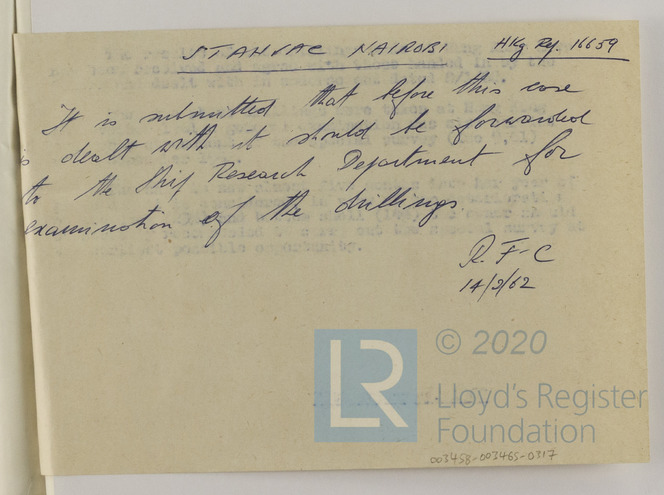 STANVAC NAIROBI HKg Ry. 16659
It is submitted that before this case
is dealt with it should be forwarded
to the Ship Research Department for
examination of the drillings
R.F-C
14/3/62
LR
© 2020
Lloyd's Register
Foundation
003458-003465-0317